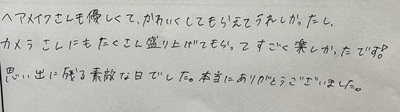 ヘアメイクさんも優しくて、かわいくしてもらえてうれしかったし、
カメラさんにもたくさん盛り上げてもらってすごく楽しかったです!
思い出に残る素敵な日でした。本当にありがとうございました。